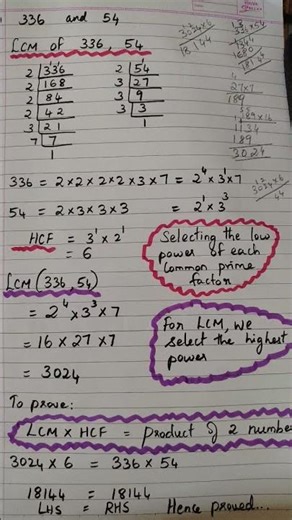 336 and 54
LCM of 336, 54
2 | 336
2 | 168
2 | 84
2 | 42
3 | 21
7 | 7
1
2 | 54
3 | 27
3 | 9
3 | 3
1
3024 x 6
18144
336 x 54
1344
1680
18144
27 x 7
189
189 x 16
1134
189
3024
3024 x 6
44
336 = 2 x 2 x 2 x 2 x 3 x 7 = 2⁴ x 3¹ x 7¹
54 = 2 x 3 x 3 x 3 = 2¹ x 3³
HCF = 3¹ x 2¹
= 6
Selecting the low
power of each
Common prime
factor
LCM (336, 54)
= 2⁴ x 3³ x 7
= 16 x 27 x 7
= 3024
For LCM, we
select the highest
power
To prove:
LCM x HCF = Product of 2 number
3024 x 6 = 336 x 54
18144 = 18144
LHS = RHS Hence proved...